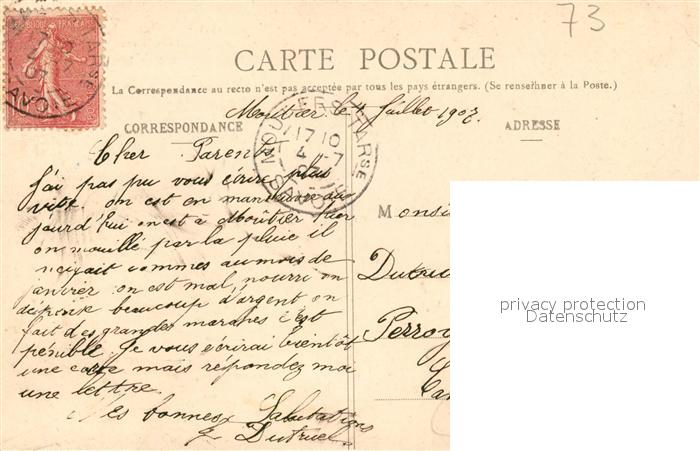 73
CARTE POSTALE
La Correspondance au recto n'est pas acceptée par tous les pays étrangers. (Se renseigner à la Poste.)
Moutier le 4 Juillet 1907
CORRESPONDANCE
ADRESSE
Cher Parent
J'ai pas pu vous écrire plus
vite on est en manœuvre au
jourd'hui on est à Moutier hier
on mouillé par la pluie il
neigait commes au mois de
janvier on est mal nourri on
dépense beaucoup d'argent on
fait des grandes marches c'est
pénible. Je vous écrirai bientôt
une carte mais répondez moi
une lettre
Mes bonnes Salutations
Dutruel
Monsi
Dutru
Perroy
Can
MOUTIERS-TARSE
17 10
4 -7
07
SAVOIE
privacy protection
Datenschutz